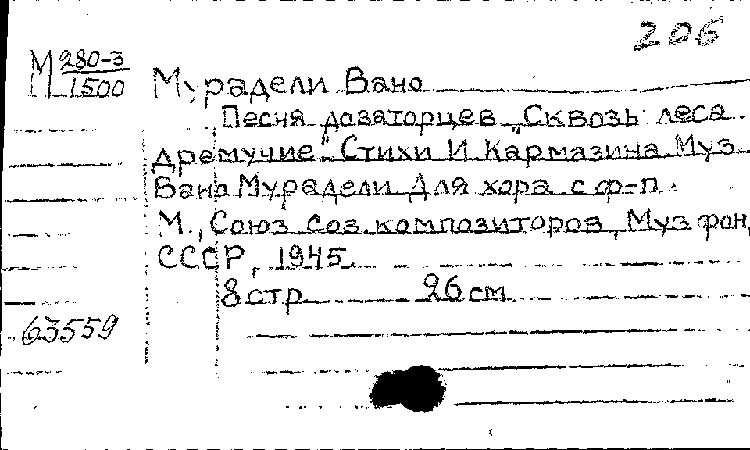 206
М 280-3
1500
Мурадели Вано
Песня дозаторцев „Сквозь леса
дремучие". Стихи И Кармазина Муз
Вано Мурадели Для хора с ф-п.
М., Союз сов. композиторов, Муз фонд
СССР, 1945.
8 стр 26 см
63559